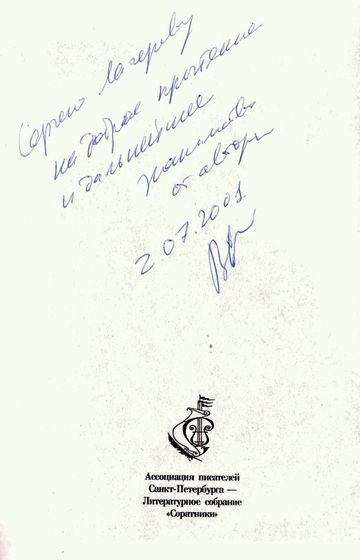 Сергею Лагереву
на доброе прочтение
и дальнейшее
знакомство
от автора
2.07.2001
Ассоциация писателей
Санкт-Петербурга —
Литературное собрание
«Соратники»